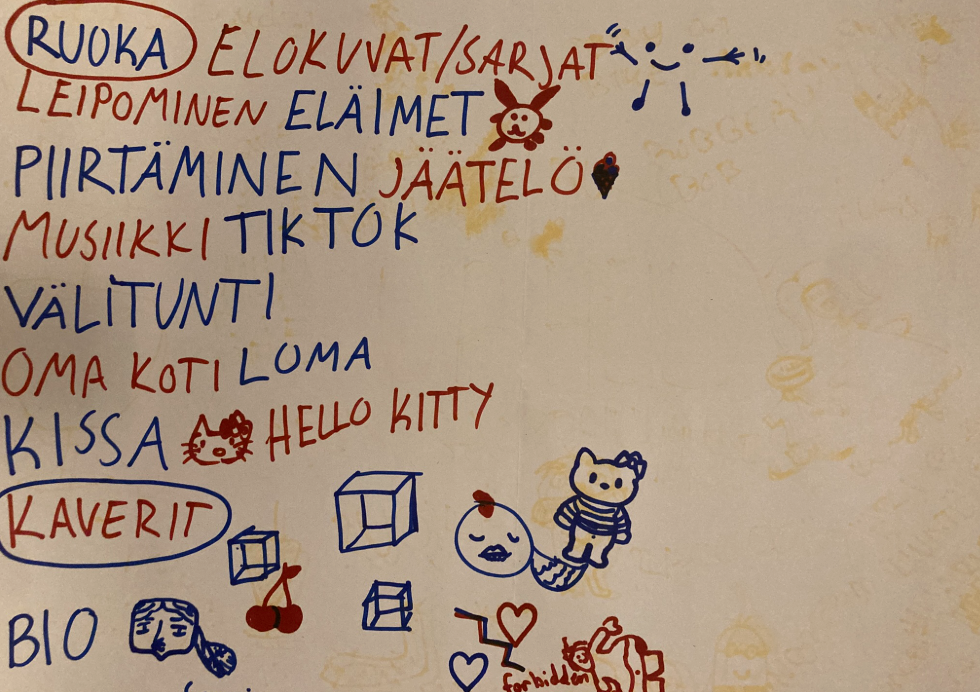 RUOKA ELOKUVAT/SARJAT
LEIPOMINEN ELÄIMET
PIIRTÄMINEN JÄÄTELÖ
MUSIIKKI TIKTOK
VÄLITUNTI
OMA KOTI LOMA
KISSA HELLO KITTY
KAVERIT
BIO
forbidden